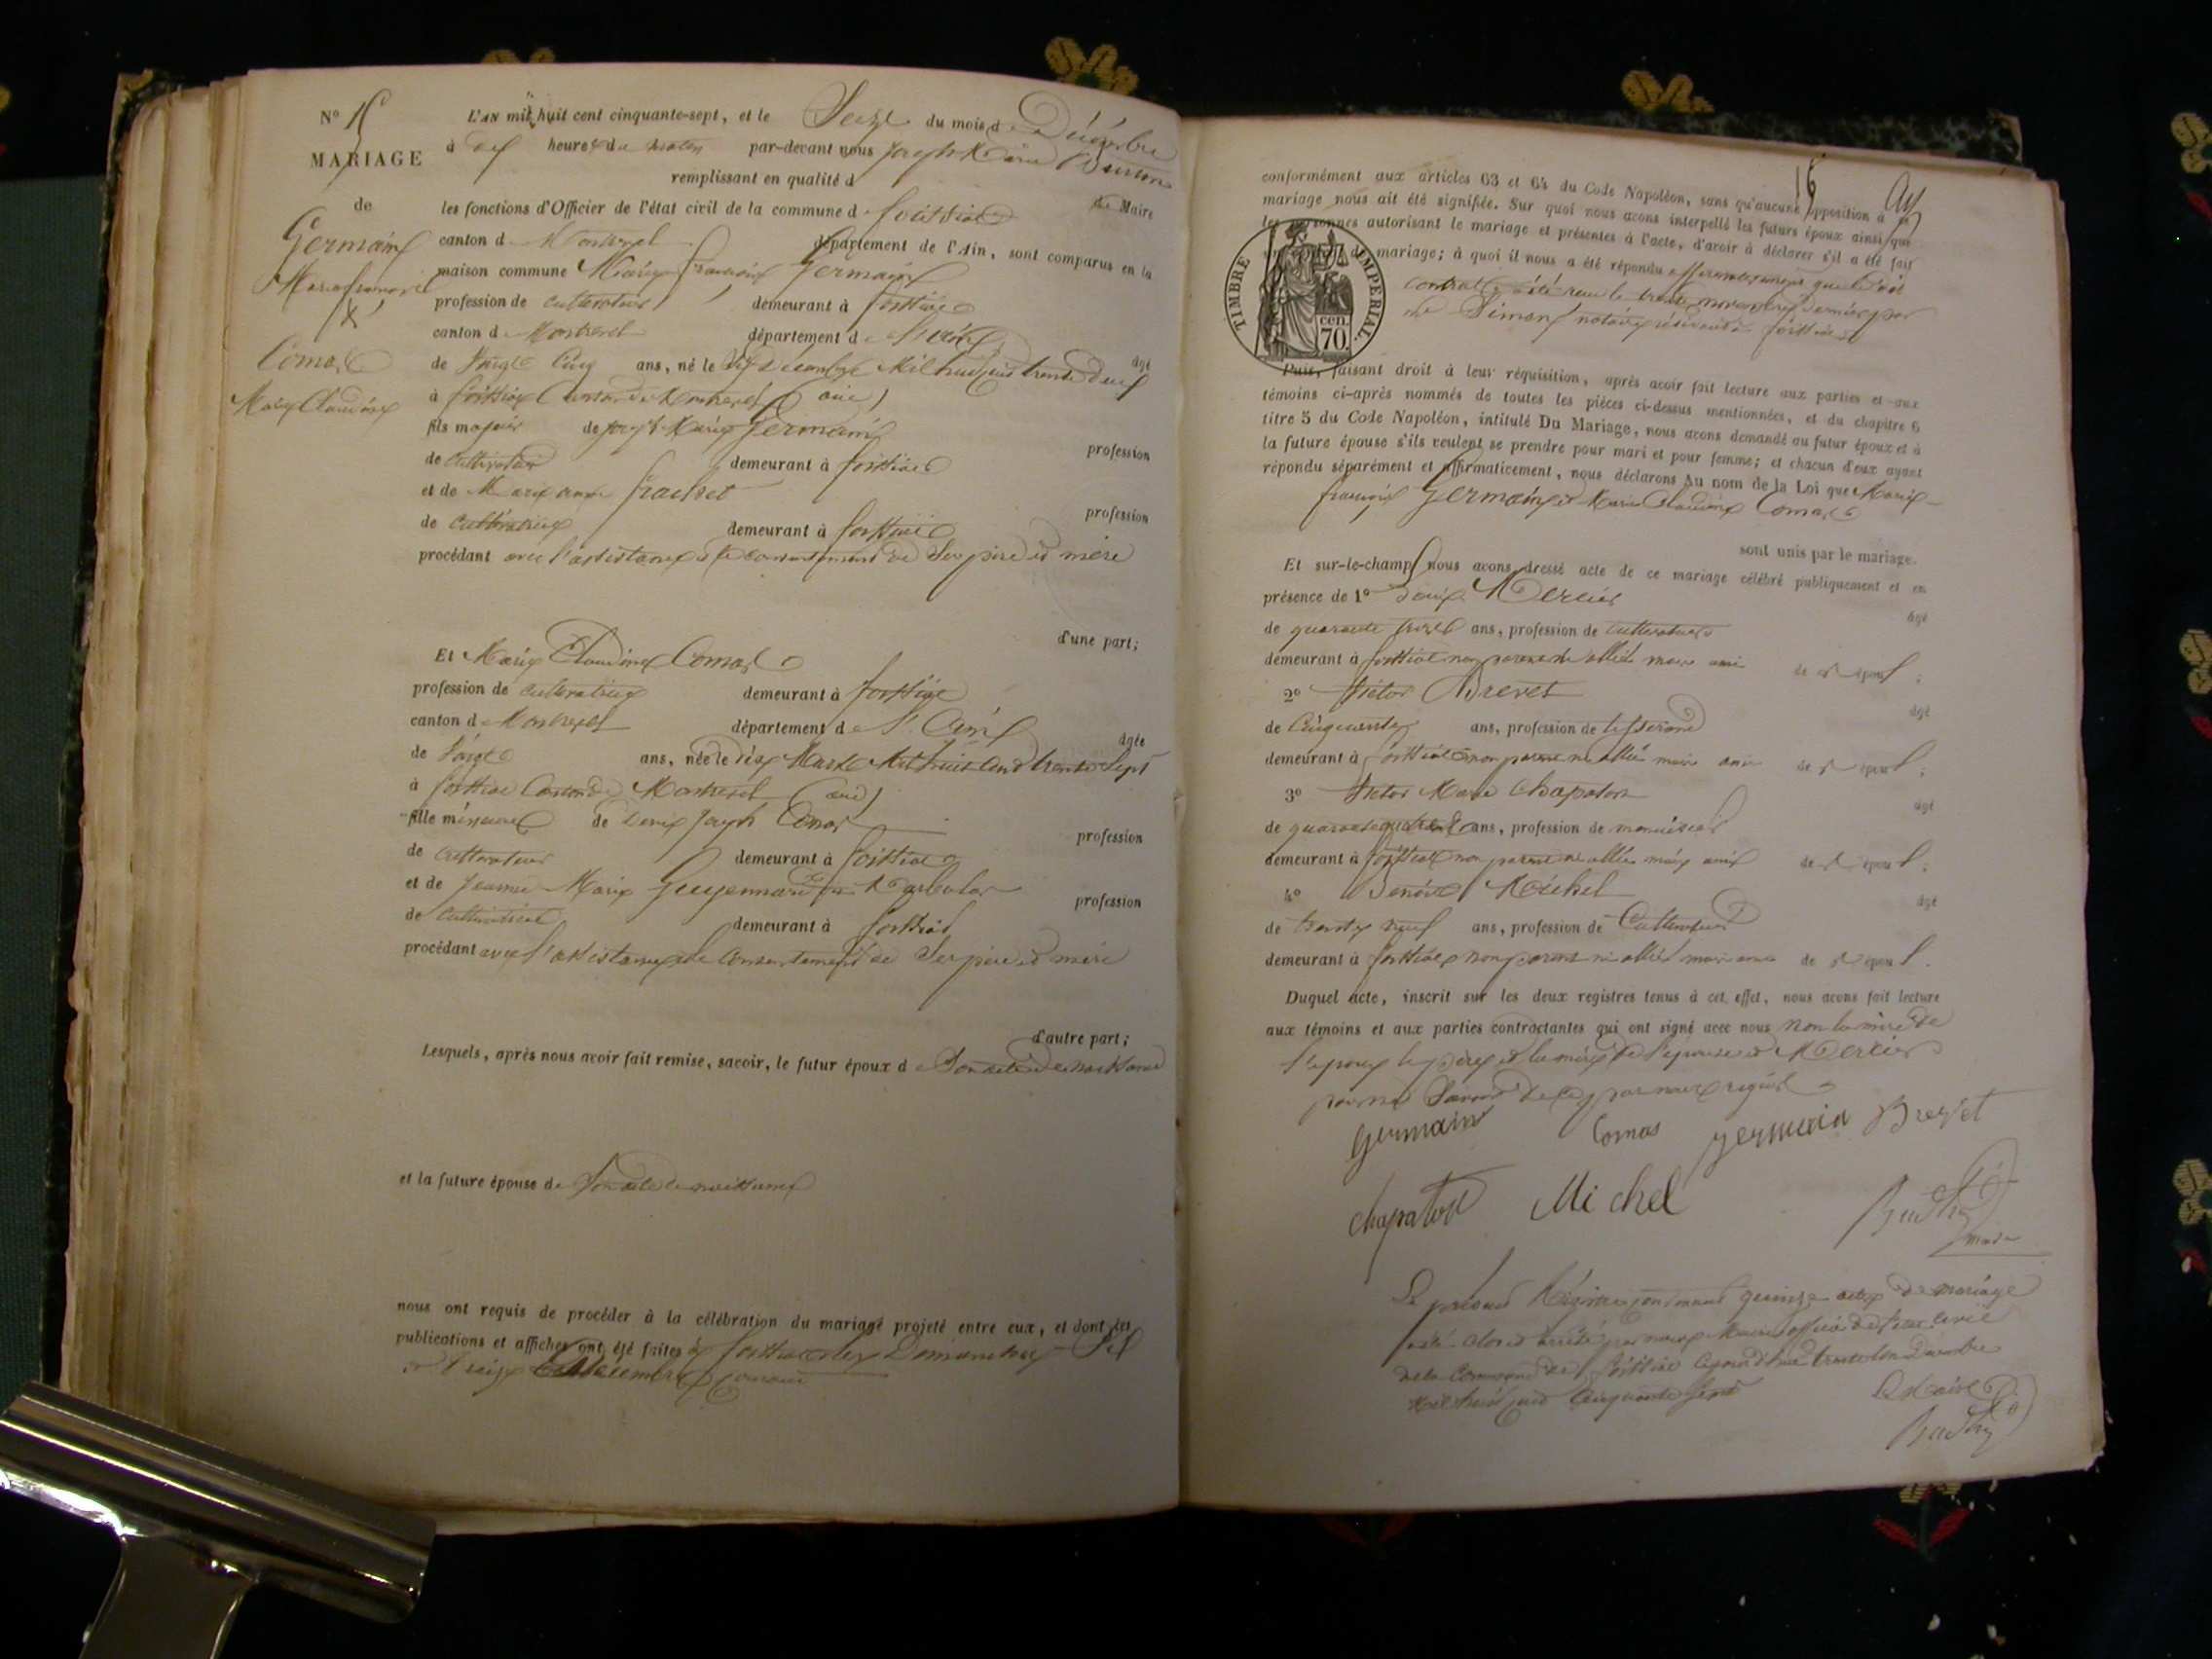 N° 15
MARIAGE
de
Germain
Marie françois
&
Comas
Marie Claudine
L'AN mil huit cent cinquante-sept, et le Seize du mois de Décembre
à dix heures du matin par-devant nous Joseph Marie
remplissant en qualité de Maire
les fonctions d'Officier de l'état civil de la commune de foissiat
canton de Montrevel département de l'Ain, sont comparus en la
maison commune Marie françois Germain
profession de cultivateur demeurant à foissiat
canton de Montrevel département de l'ain âgé
de Vingt Cinq ans, né le dix décembre Mil huit cent trente deux
à foissiat Canton de Montrevel (ain)
fils majeur de Joseph Marie Germain profession
de Cultivateur demeurant à foissiat
et de Marie anne frachet profession
de Cultivatrice demeurant à foissiat
procédant avec l'assistance et le consentement de Ses père et mère
d'une part;
Et Marie Claudine Comas
profession de cultivatrice demeurant à foissiat
canton de Montrevel département de l'Ain âgée
de Vingt ans, née le dix Mars Mil huit Cent trente Sept
à foissiat Canton de Montrevel (ain)
fille mineure de Denis Joseph Comas profession
de cultivateur demeurant à foissiat
et de Jeanne Marie profession
de Cultivatrice demeurant à foissiat
procédant avec l'assistance et le Consentement de Ses père et mère
d'autre part;
Lesquels, après nous avoir fait remise, savoir, le futur époux de Son acte de naissance
et la future épouse de Son acte de naissance
nous ont requis de procéder à la célébration du mariage projeté entre eux, et dont les
publications et affiches ont été faites à foissiat les Dimanches Six
et Treize Décembre courant
16
conformément aux articles 63 et 64 du Code Napoléon, sans qu'aucune opposition à ce
mariage nous ait été signifiée. Sur quoi nous avons interpellé les futurs époux ainsi que
les personnes autorisant le mariage et présentes à l'acte, d'avoir à déclarer s'il a été fait
un contrat de mariage; à quoi il nous a été répondu affirmativement que le dit
contrat a été reçu le trente novembre dernier par
Me Simon notaire résidant à foissiat
TIMBRE IMPERIAL
cen.
70.
Puis, faisant droit à leur réquisition, après avoir fait lecture aux parties et aux
témoins ci-après nommés de toutes les pièces ci-dessus mentionnées, et du chapitre 6
titre 5 du Code Napoléon, intitulé Du Mariage, nous avons demandé au futur époux et à
la future épouse s'ils veulent se prendre pour mari et pour femme; et chacun d'eux ayant
répondu séparément et affirmativement, nous déclarons Au nom de la Loi que Marie
françois Germain et Marie Claudine Comas
sont unis par le mariage.
Et sur-le-champ nous avons dressé acte de ce mariage célébré publiquement et en
présence de 1° Denis Mercier âgé
de quarante ans, profession de cultivateur
demeurant à foissiat non parent ni allié mais ami de l'époux;
2° Victor Brevet âgé
de Cinquante ans, profession de tisserand
demeurant à foissiat non parent ni allié mais ami de l'époux;
3° Victor Marie Chapaton âgé
de ans, profession de menuisier
demeurant à foissiat non parent ni allié mais ami de l'époux;
4° Benoit Michel âgé
de trente neuf ans, profession de Cultivateur
demeurant à foissiat non parent ni allié mais ami de l'époux.
Duquel acte, inscrit sur les deux registres tenus à cet effet, nous avons fait lecture
aux témoins et aux parties contractantes qui ont signé avec nous non la mère de
l'époux le père et la mère de l'épouse et Mercier
pour ne Savoir de ce par nous requis
germain Comas germain Brevet
Chapaton Michel
maire
Le présent Régistre contenant quinze actes de mariage
a été clos et arrêté par nous Maire officier de l'état civil
de la Commune de foissiat aujourd'hui trente un Décembre
Mil huit cent Cinquante Sept
Le Maire